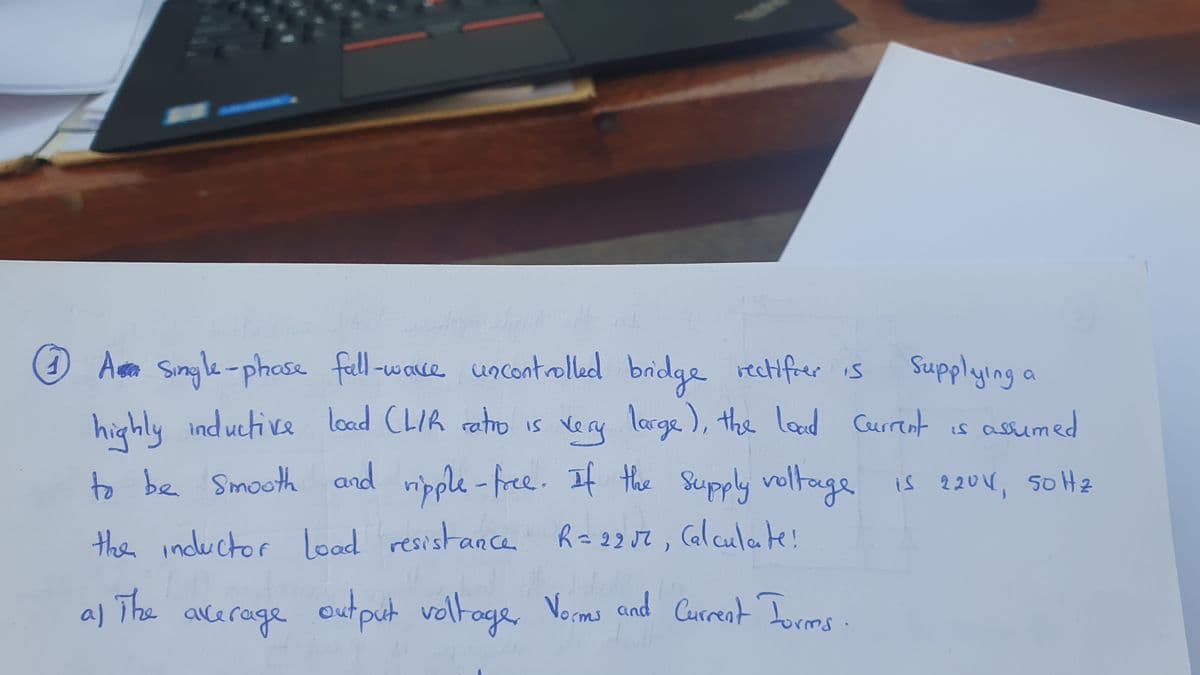 ① A Single-phase full-wave uncontrolled bridge rectifier is Supplying a
highly inductive load (L/R ratio is very large), the load Current is assumed
to be Smooth and ripple-free. If the Supply voltage is 220V, 50Hz
the inductor load resistance R = 22Ω, Calculate!
a) The average output voltage Vorms and Current Iorms.